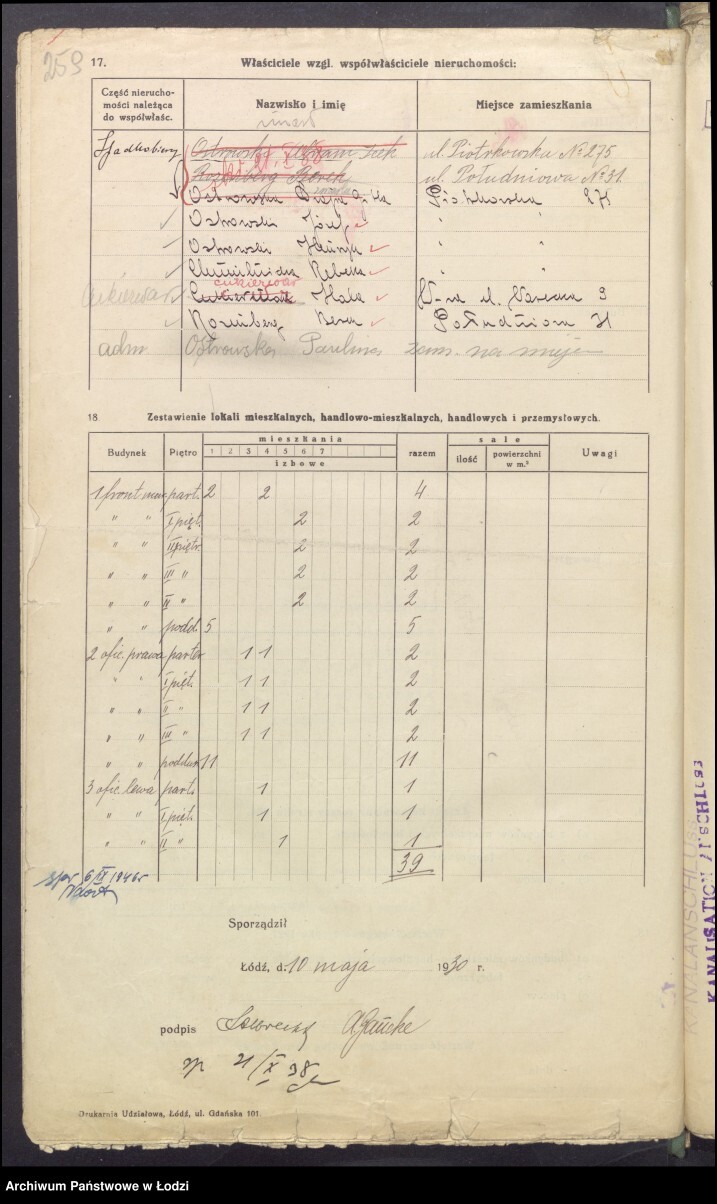 259
17. Właściciele wzgl. współwłaściciele nieruchomości:
Część nierucho-
mości należąca
do współwłaśc.
Nazwisko i imię
Miejsce zamieszkania
zmarł
Ostrowski Abram Icek ul. Piotrkowska № 275
Rozenberg ul. Południowa № 31
Ostrowska Gitla Piotrkowska 275
Ostrowski Józef " "
Ostrowski " "
Rebeka " "
cukierwar
Cukierwar Hala W-wa ul. Warecka 9
Rozenberg Beren Południowa 31
adm Ostrowska Paulina zam. na miejscu
18 Zestawienie lokali mieszkalnych, handlowo-mieszkalnych, handlowych i przemysłowych.
Budynek Piętro mieszkania razem sale Uwagi
1 2 3 4 5 6 7
izbowe
ilość powierzchni w m.²
1 front part. 2 2 4
" " I pięt. 2 2
" " II piętr. 2 2
" " III " 2 2
" " II " 2 2
" " podd. 5 5
2 ofic. prawa parter 1 1 2
" " I pięt. 1 1 2
" " II " 1 1 2
" " III " 1 1 2
" " poddas 11 11
3 ofic. lewa part. 1 1
" " I pięt. 1 1
" " II " 1 1
39
spr 6/IX 1946 r
Sporządził
Łódź, d. 10 maja 1930 r.
podpis
21/X 38
Drukarnia Udziałowa, Łódź, ul. Gdańska 101.
KANALANSCHLUSS
KANALISATION
Archiwum Państwowe w Łodzi